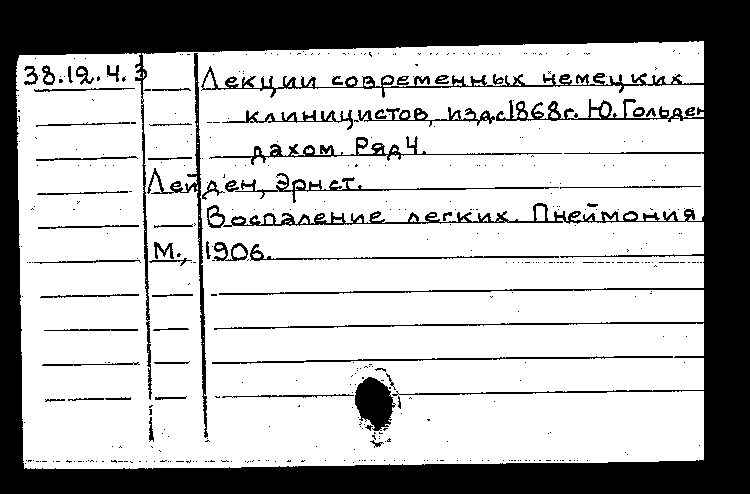 38.12.4.3 Лекции современных немецких
клиницистов, изд.с1868г. Ю. Гольден
дахом. Ряд 4.
Лейден, Эрнст.
Воспаление легких. Пнеймония.
М., 1906.